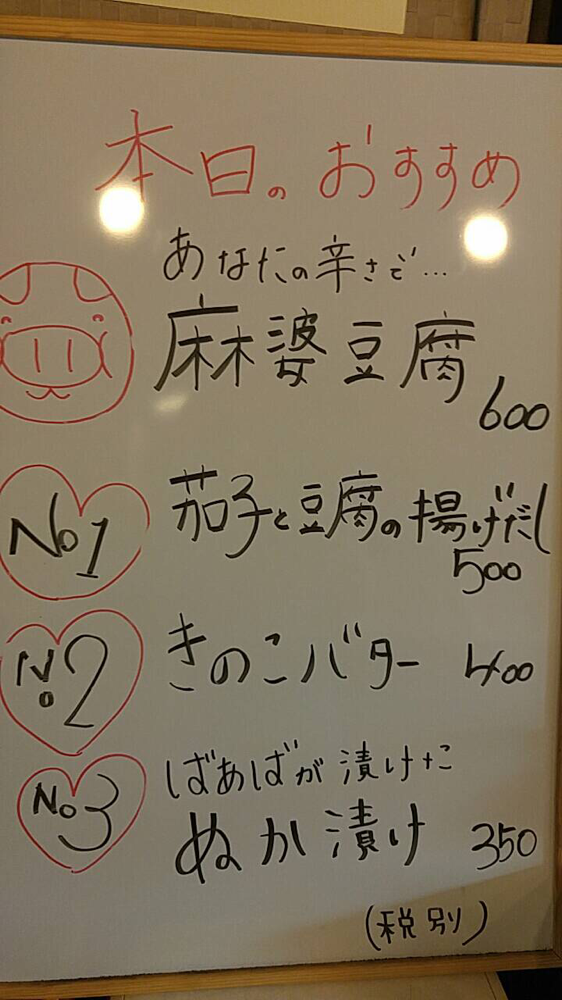 本日のおすすめ
あなたの辛さで…
麻婆豆腐
600
No1
茄子と豆腐の揚げだし
500
No2
きのこバター 400
No3
ばあばが漬けたこ
ぬか漬け 350
(税別)